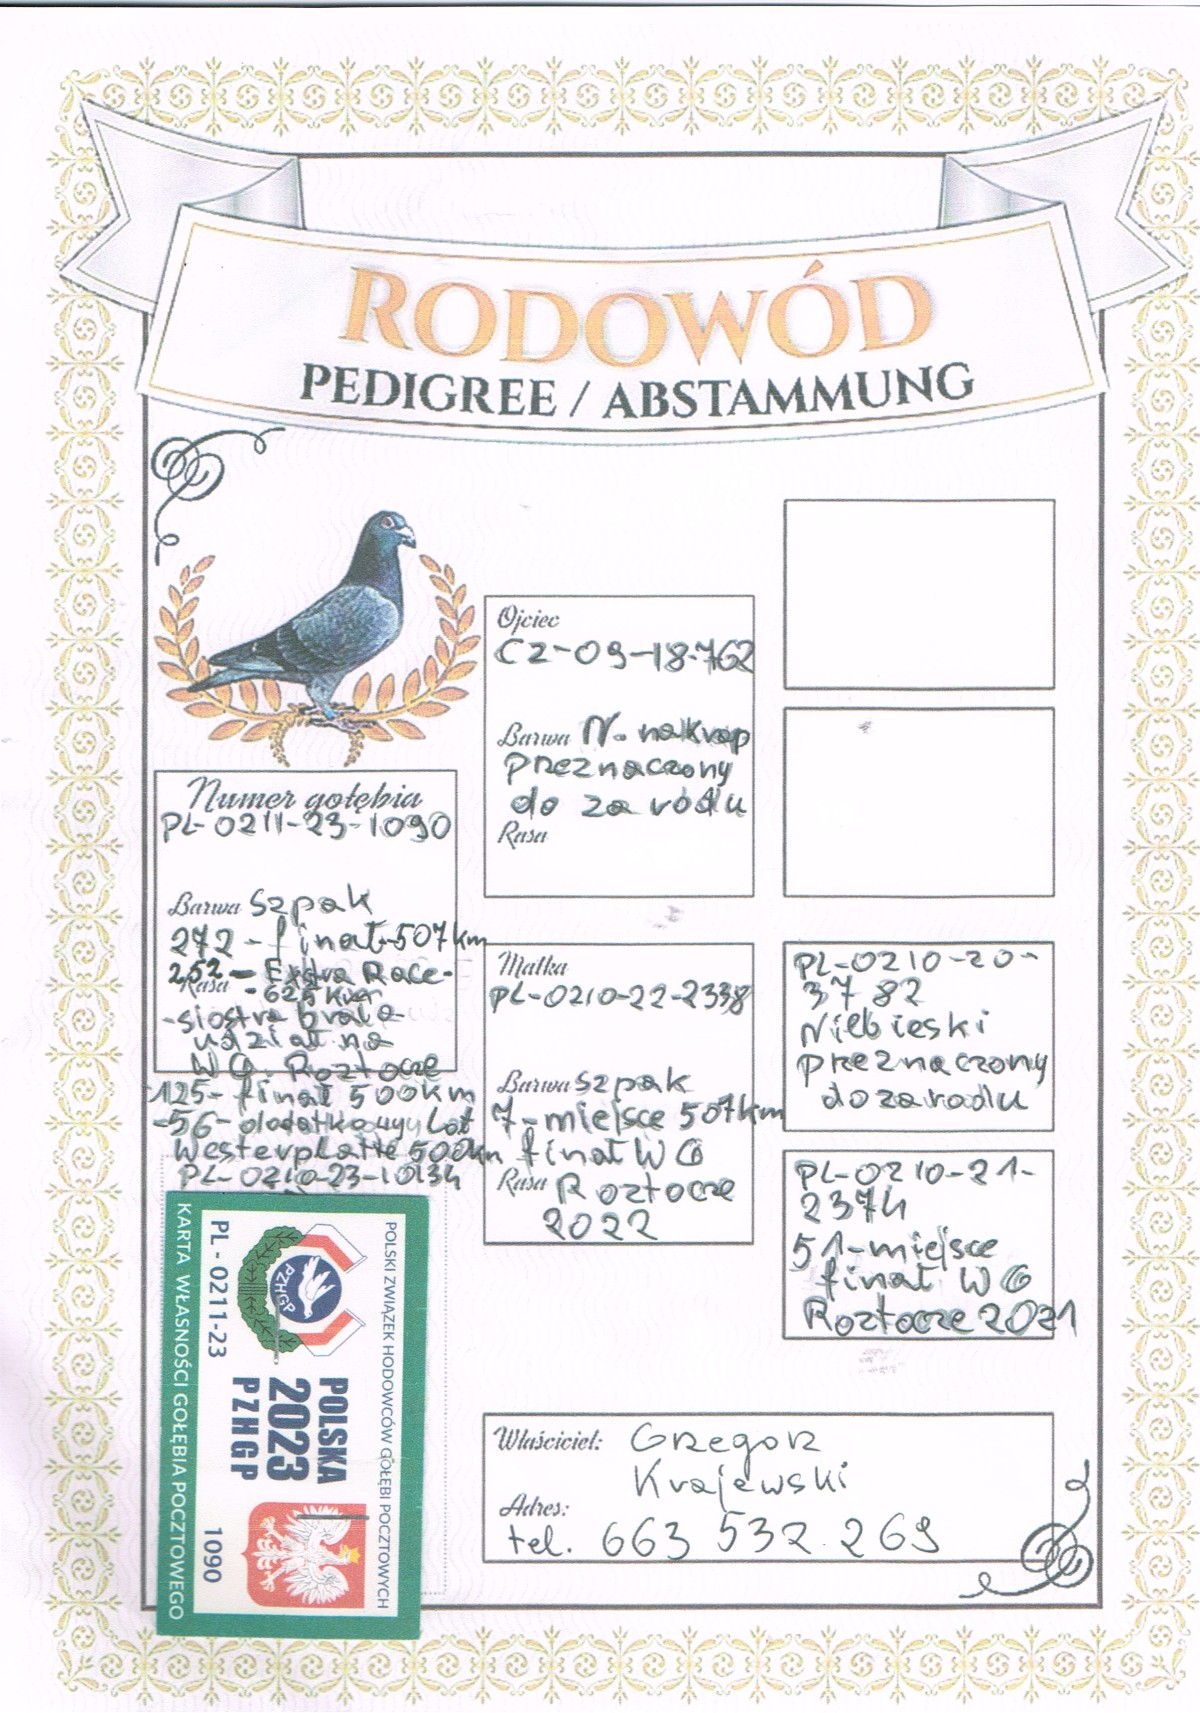 RODOWÓD
PEDIGREE / ABSTAMMUNG
Numer gołębia
PL-0211-23-1090
Barwa Szpak
272 - finał-507km
252 - Extra Race-
Rasa - 625 km
-siostra brała
udział na
WG. Roztocze
125- finał 500km
-56- dodatkowy Lot
Westerplatte 500km
PL-0210-23-10134
Ojciec
CZ-09-18-762
Barwa N. nakrap
przeznaczony
do zarodu
Rasa
Matka
PL-0210-22-2338
Barwa szpak
7-miejsce 507km
finał WG
Rasa Roztocze
2022
PL-0210-20-
3782
Niebieski
przeznaczony
do zarodu
PL-0210-21-
2374
51-miejsce
finał WG
Roztocze 2021
Właściciel: Grzegorz
Krajewski
Adres:
tel. 663 532 269
POLSKI ZWIĄZEK HODOWCÓW GOŁĘBI POCZTOWYCH
PZHGP
POLSKA
2023
PZHGP
PL - 0211-23
1090
KARTA WŁASNOŚCI GOŁĘBIA POCZTOWEGO